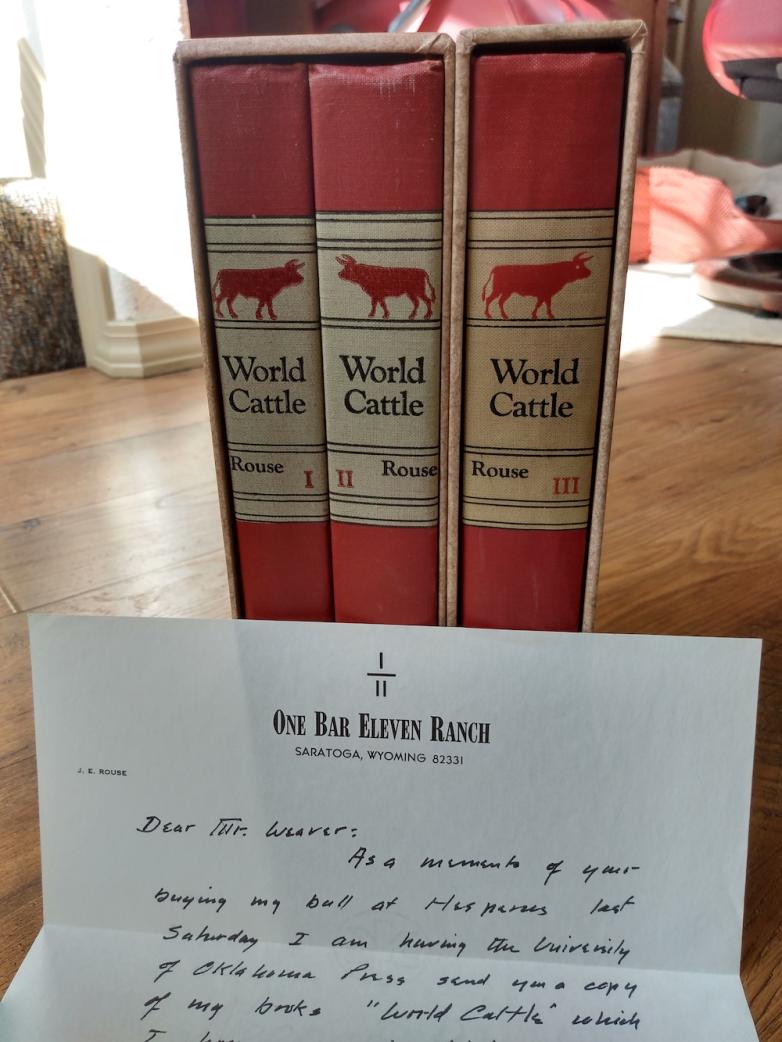 World
Cattle
Rouse I
World
Cattle
II Rouse
World
Cattle
Rouse III
I
II
ONE BAR ELEVEN RANCH
SARATOGA, WYOMING 82331
J. E. ROUSE
Dear Mr. Weaver:
As a memento of your
buying my bull at Hesperus last
Saturday I am having the University
of Oklahoma Press send you a copy
of my books "World Cattle" which